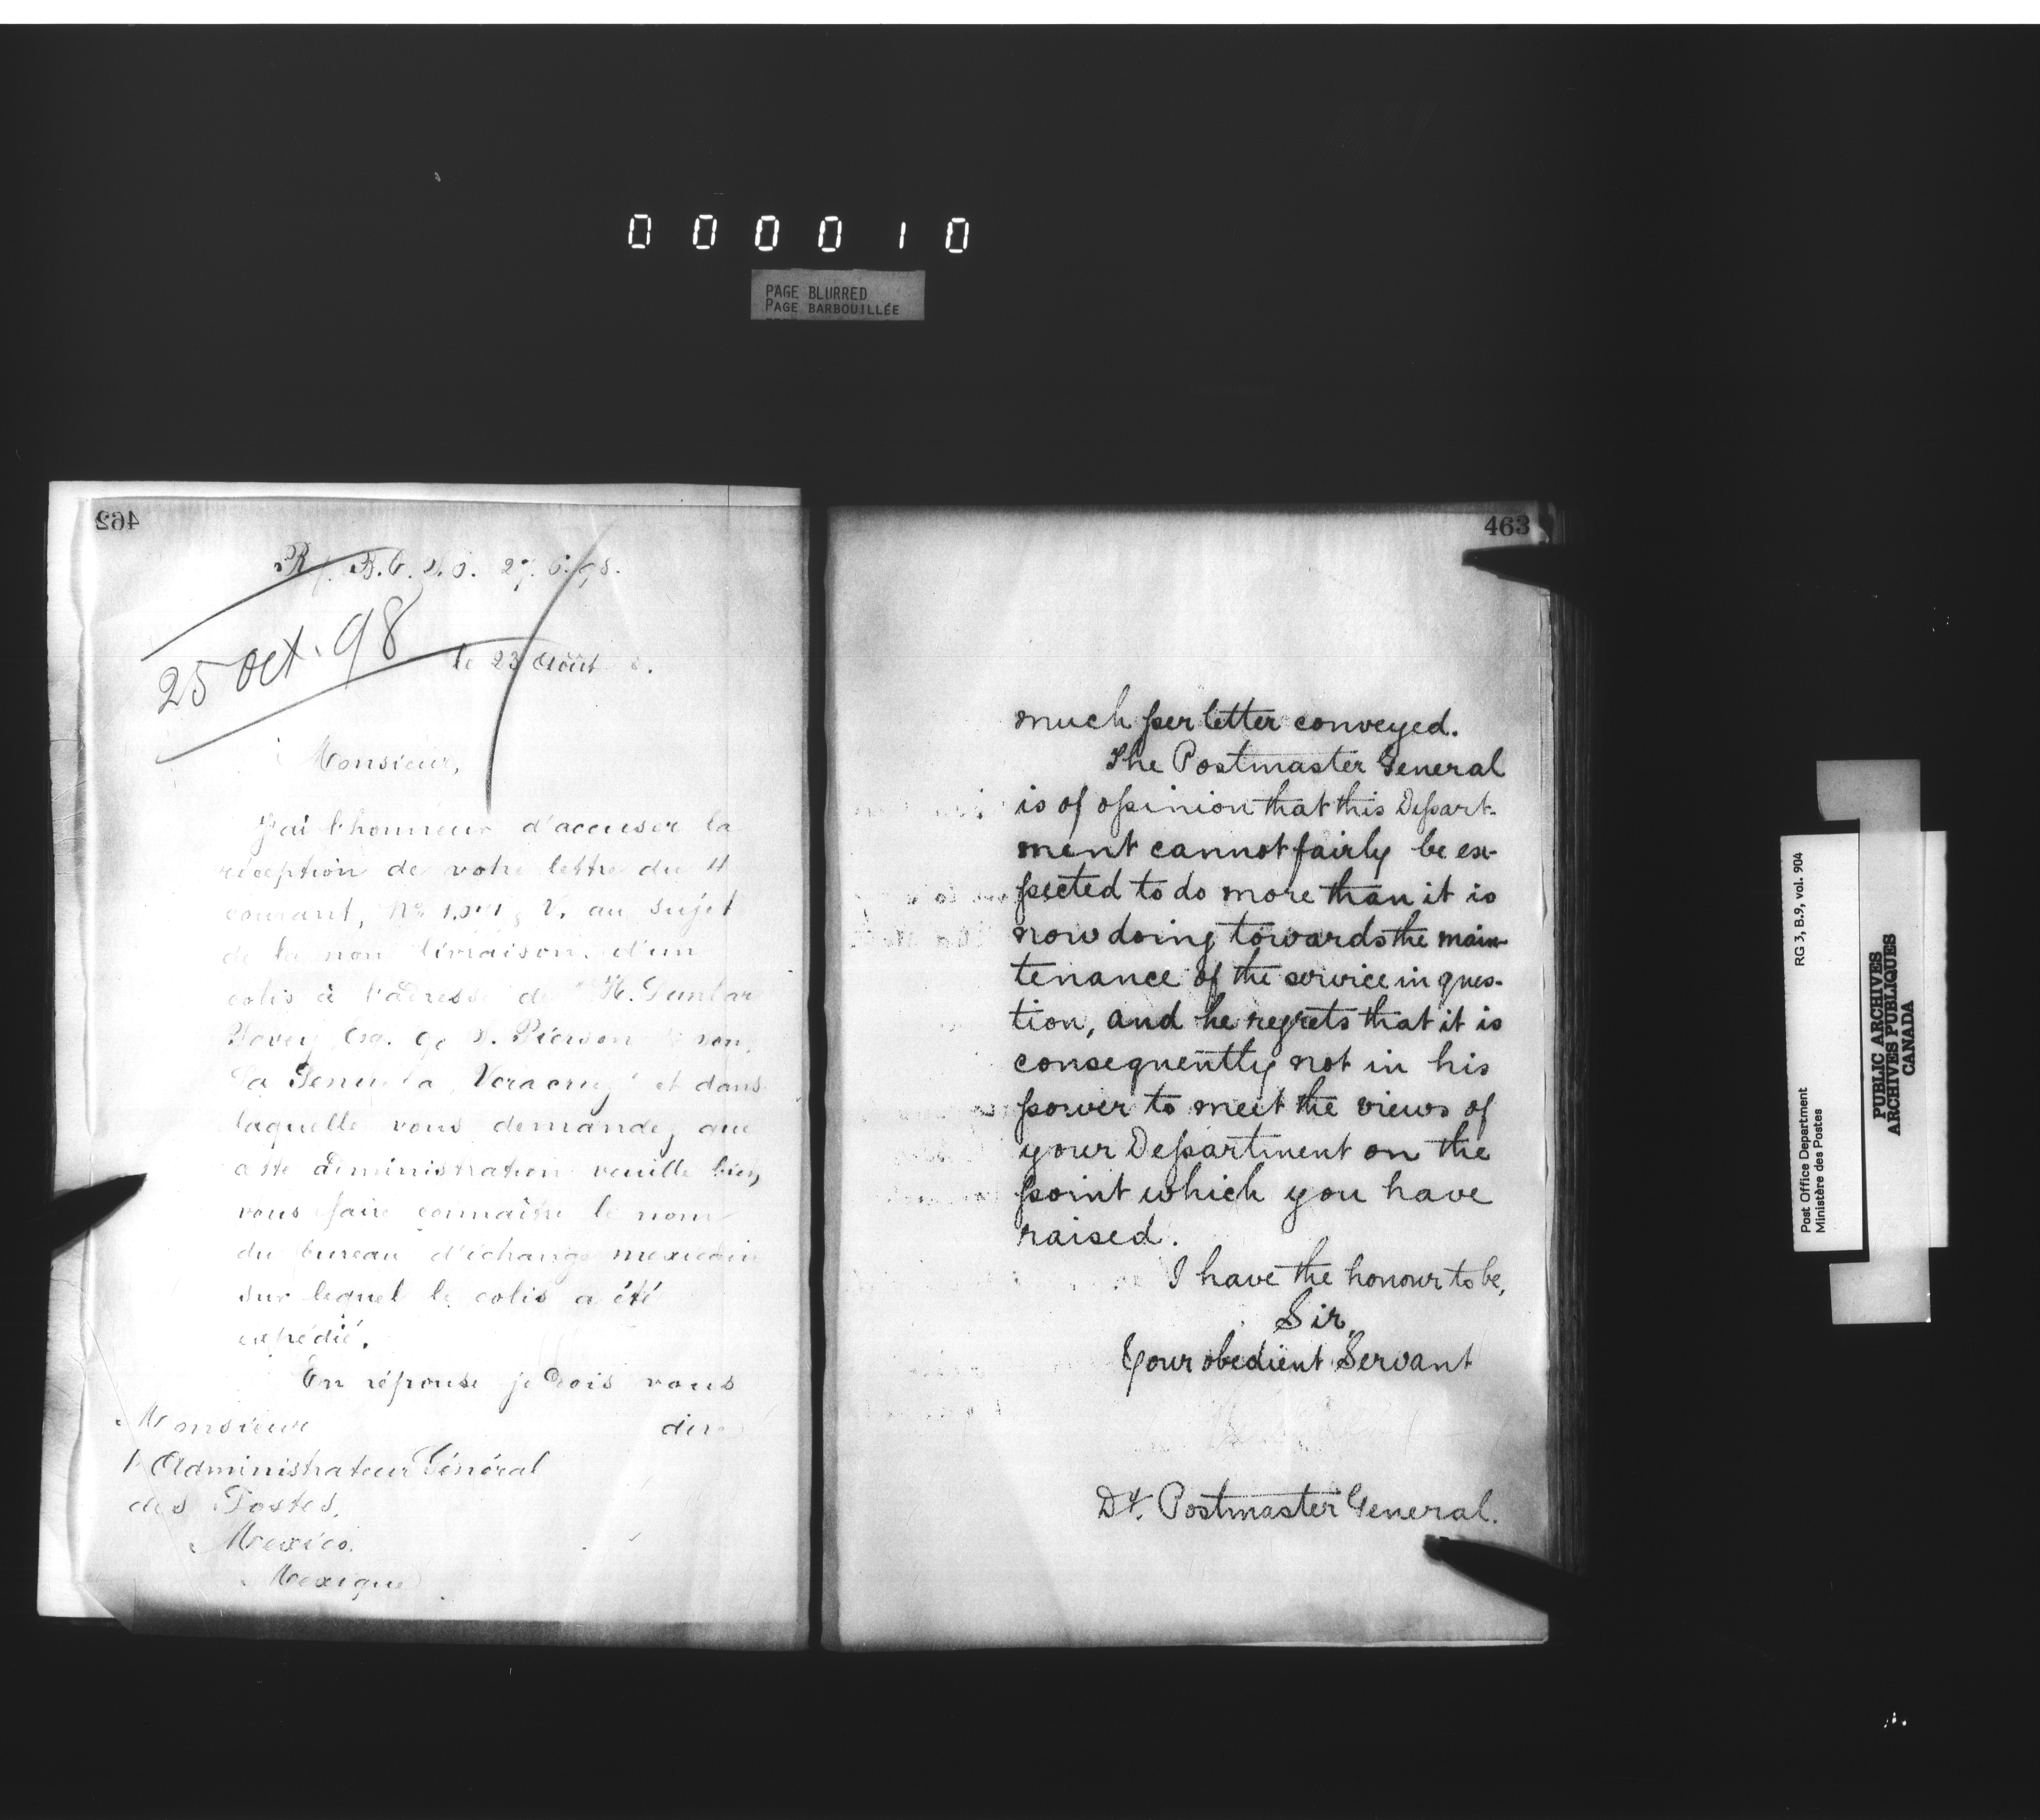 000010
PAGE BLURRED
PAGE BARBOUILLÉE
462
R/. B.C. 27.6.98.
25 Oct. 98
le 23 Août 8.
Monsieur,
J'ai l'honneur d'accuser la
réception de votre lettre du 4
courant, No V. au sujet
de la non livraison d'un
colis à l'adresse de "H. Dunbar
Esq. c/o Pierson
La Veracruz" et dans
laquelle vous demandez que
cette administration veuille bien
vous faire connaître le nom
du bureau d'échange mexicain
sur lequel le colis a été
expédié.
En réponse je dois vous
dire
Monsieur
l'Administrateur Général
des Postes,
Mexico.
Mexique
463
much per letter conveyed.
The Postmaster General
is of opinion that this Depart-
ment cannot fairly be ex-
pected to do more than it is
now doing towards the main-
tenance of the service in ques-
tion, and he regrets that it is
consequently not in his
power to meet the views of
your Department on the
point which you have
raised.
I have the honour to be,
Sir,
Your obedient Servant
Dy. Postmaster General.
Post Office Department
Ministère des Postes
RG 3, B.9, vol. 904
PUBLIC ARCHIVES
ARCHIVES PUBLIQUES
CANADA